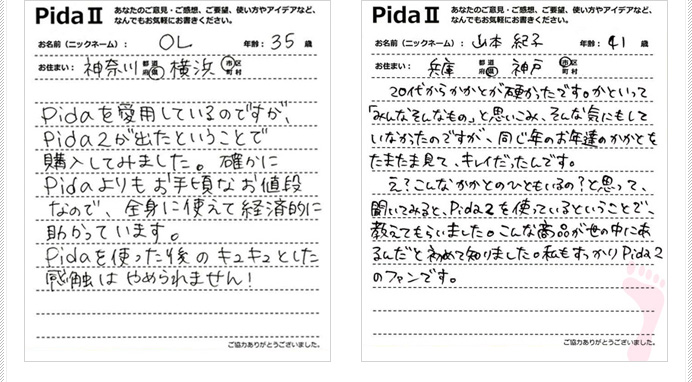 Pida II
あなたのご意見・ご感想、ご要望、使い方やアイデアなど、
なんでもお気軽にお書きください。
お名前（ニックネーム）： OL 年齢： 35 歳
お住まい： 神奈川 都道府県 横浜 市区町村
Pidaを愛用しているのですが、
Pida2が出たということで
購入してみました。確かに
Pidaよりもお手頃なお値段
なので、全身に使えて経済的に
助かっています。
Pidaを使った後のキュキュとした
感触はやめられません！
ご協力ありがとうございました。
Pida II
あなたのご意見・ご感想、ご要望、使い方やアイデアなど、
なんでもお気軽にお書きください。
お名前（ニックネーム）： 山本 紀子 年齢： 41 歳
お住まい： 兵庫 都道府県 神戸 市区町村
20代からかかとが硬かったです。かといって
「みんなそんなもの」と思いこみ、そんな気にもして
いなかったのですが、同じ年のお友達のかかとを
たまたま見て、キレイだったんです。
え？こんなかかとのひともいるの？と思って、
聞いてみると、Pida2を使っているということで、
教えてもらいました。こんな商品が世の中にあ
るんだと初めて知りました。私もすっかりPida2
のファンです。
ご協力ありがとうございました。